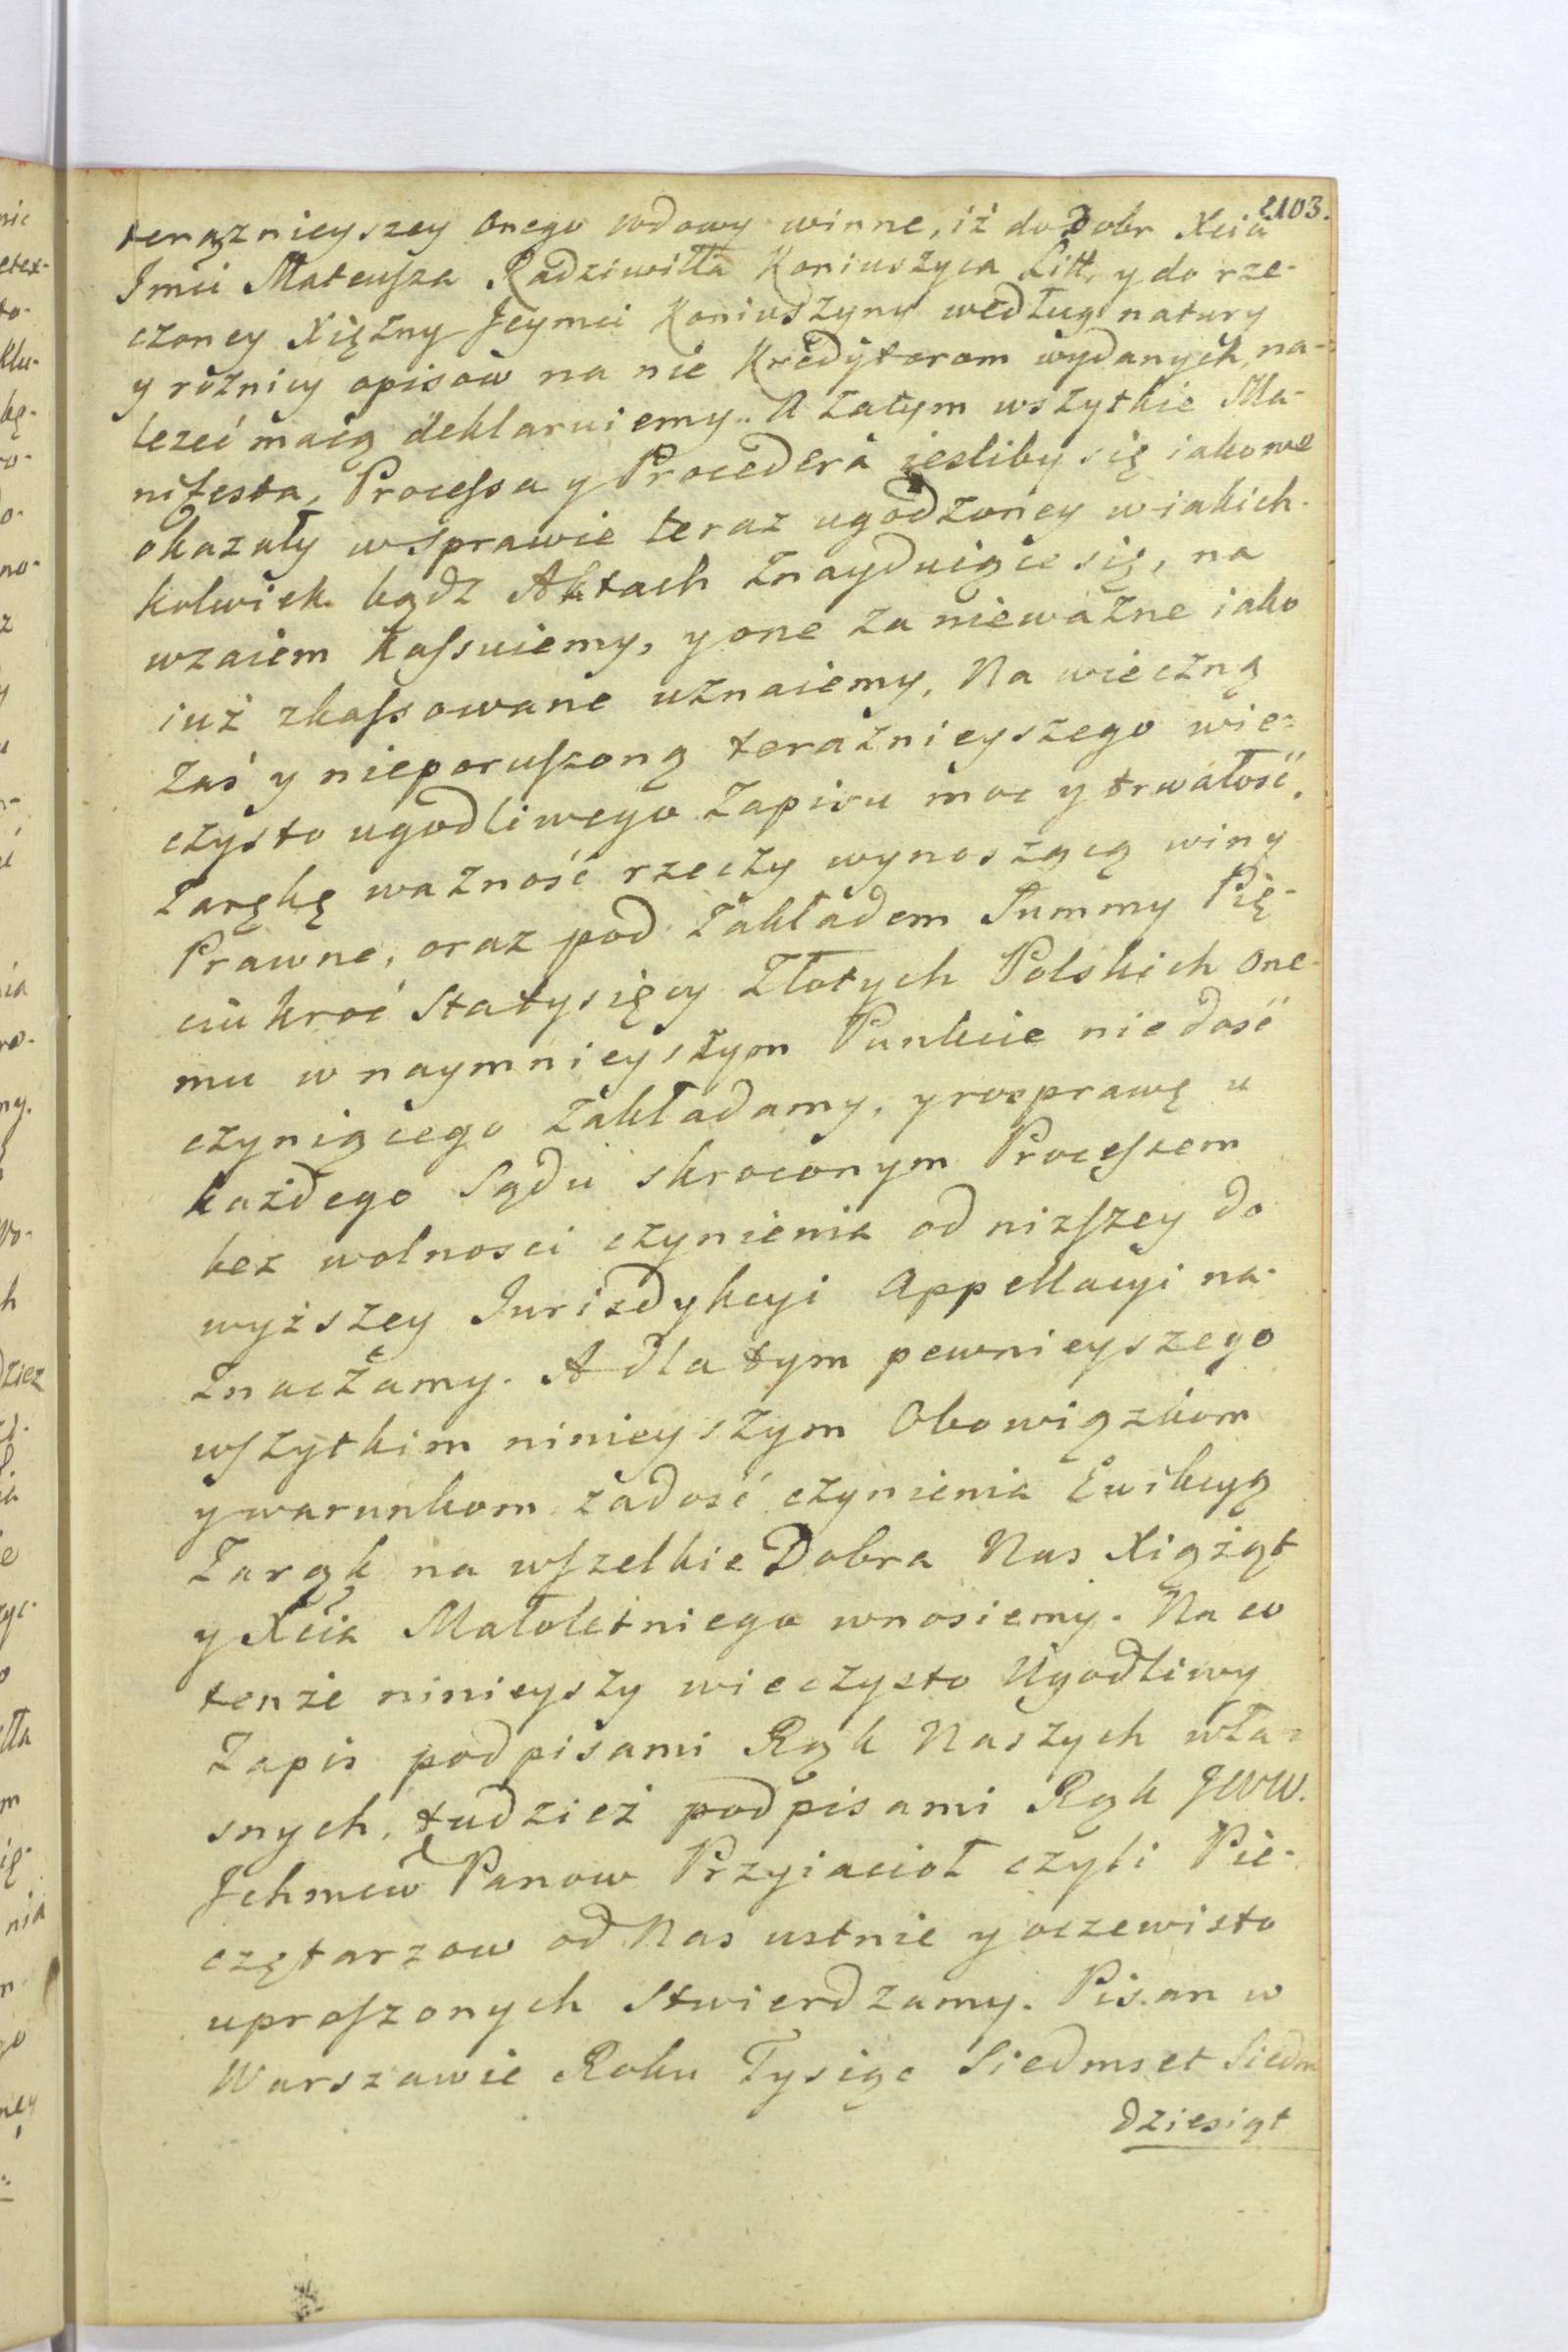 2103.
terąznieyszey onego wdowy winne, iż do Dobr Xcia
Imci Mateusza Radziwiłła Koniuszyca Litt. y do rze-
czoney Xiężny Jeymci Koniuszyny według natury
y rożnicy opisow na nie Kredytorom wydanych, na-
leżeć maią deklaruiemy. A zatym wszytkie Ma-
nifesta, Processa y Procedera iesliby się iakowe
okazały w sprawie teraz ugodzoney w iakich-
kolwiek bądz Aktach znayduiące się, na
wzaiem kassuiemy, y one za nieważne iako
iuż zkassowane uznaiemy, Na wieczną
zaś y nieporuszoną teraznieyszego wie-
czysto ugodliwego Zapisu moc y trwałość,
Zarękę ważność rzeczy wynoszącą winy
Prawne, oraz pod Zakładem Summy Pię-
ciu kroć Statysięcy Złotych Polskich one-
mu w naymnieyszym Punkcie nie dość
czyniącego Zakładamy, y rosprawę u
każdego Sądu skroconym Processem
bez wolnosci czynienia od niższey do
wyższey Jurizdykcyi Appellacyi na-
znaczamy. A dla tym pewnieyszego
wszytkim ninieyszym Obowiązkom
y warunkom zadość czynienia Ewikcyą
Zarąk na wszelkie Dobra Nas Xiążąt
y Xcia Małoletniego wnosiemy. Na co
tenże ninieyszy wieczysto Ugodliwy
Zapis podpisami Rąk Naszych wła-
snych, tudzież podpisami Rąk JWW.
Ichmciw Panow Przyiacioł czyli Pie-
czętarzow od Nas ustnie y oczewisto
uproszonych stwierdzamy. Pisan w
Warszawie Roku Tysiąc Siedmset Siedm
dziesiąt